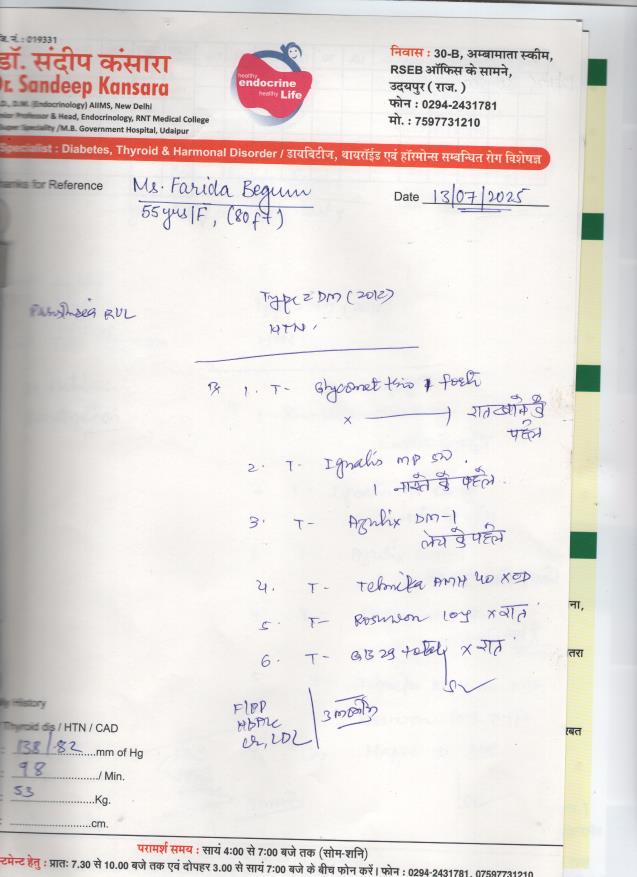 जि. नं. : 019331
डॉ. संदीप कंसारा
Dr. Sandeep Kansara
D., D.M. (Endocrinology) AIIMS, New Delhi
nior Professor & Head, Endocrinology, RNT Medical College
Super Speciality /M.B. Government Hospital, Udaipur
healthy
endocrine
healthy Life
निवास : 30-B, अम्बामाता स्कीम,
RSEB ऑफिस के सामने,
उदयपुर ( राज. )
फोन : 0294-2431781
मो. : 7597731210
Specialist : Diabetes, Thyroid & Harmonal Disorder / डायबिटीज, थायरॉईड एवं हॉरमोन्स सम्बन्धित रोग विशेषज्ञ
hanks for Reference
Ms. Farida Begum
Date 13/07/2025
55yrs/F,
Type 2 DM (2012)
HTN
RUL
Rx 1. T- Glycomet trio 1 forte
रात खाने के
पहले
2. T- MP 50
1 नास्ते के पहले
3. T- DM-1
के पहले
4. T- Telmika AMH 40 x OD
5. T- 10mg x रात
6. T- x रात
F/PP
HbA1c
Cr, LDL
ly History
Thyroid dis / HTN / CAD
: 138/82 mm of Hg
: 98 / Min.
: 53 Kg.
: cm.
ना,
तरा
बत
परामर्श समय : सायं 4:00 से 7:00 बजे तक (सोम-शनि)
न्टमेन्ट हेतु : प्रातः 7.30 से 10.00 बजे तक एवं दोपहर 3.00 से सायं 7:00 बजे के बीच फोन करें। फोन : 0294-2431781, 07597731210